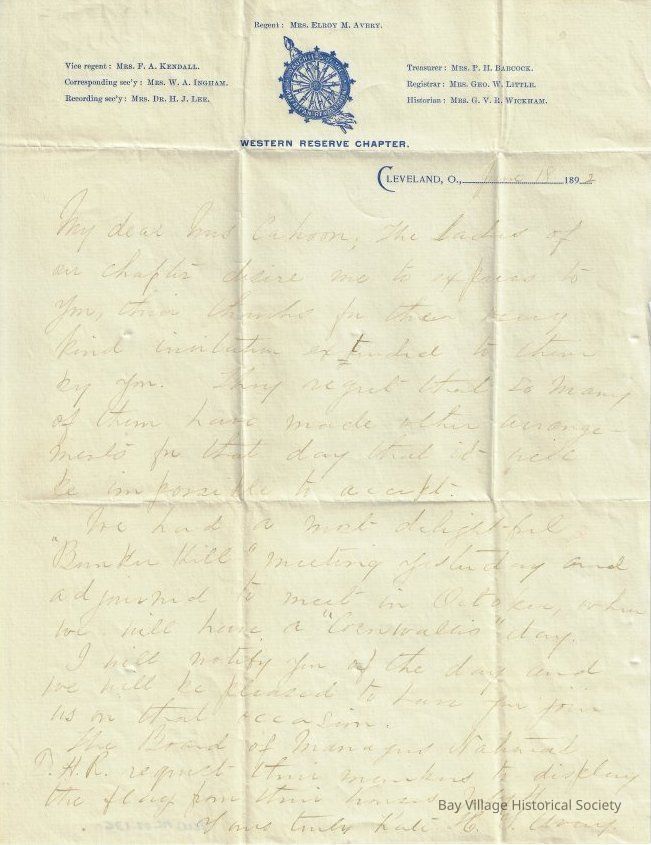 Regent: Mrs. Elroy M. Avery.
Vice regent: Mrs. F. A. Kendall.
Corresponding sec'y: Mrs. W. A. Ingham.
Recording sec'y: Mrs. Dr. H. J. Lee.
Treasurer: Mrs. P. H. Babcock.
Registrar: Mrs. Geo. W. Little.
Historian: Mrs. G. V. R. Wickham.
WESTERN RESERVE CHAPTER.
Cleveland, O., June 18 1892
My dear Mrs Cahoon, The ladies of
our chapter desire me to express to
you, their thanks for the very
kind invitation extended to them
by you. They regret that so many
of them have made other arrange-
ments for that day that it will
be impossible to accept.
We had a most delightful
"Bunker Hill" meeting yesterday and
adjourned to meet in October, when
we will have a "Cornwallis" day.
I will notify you of the day and
we will be pleased to have you join
us on that occasion.
The Board of Managers National
D.A.R. request their members to display
the flag from their houses July 4
Yours truly Kate H. T. Avery
Bay Village Historical Society